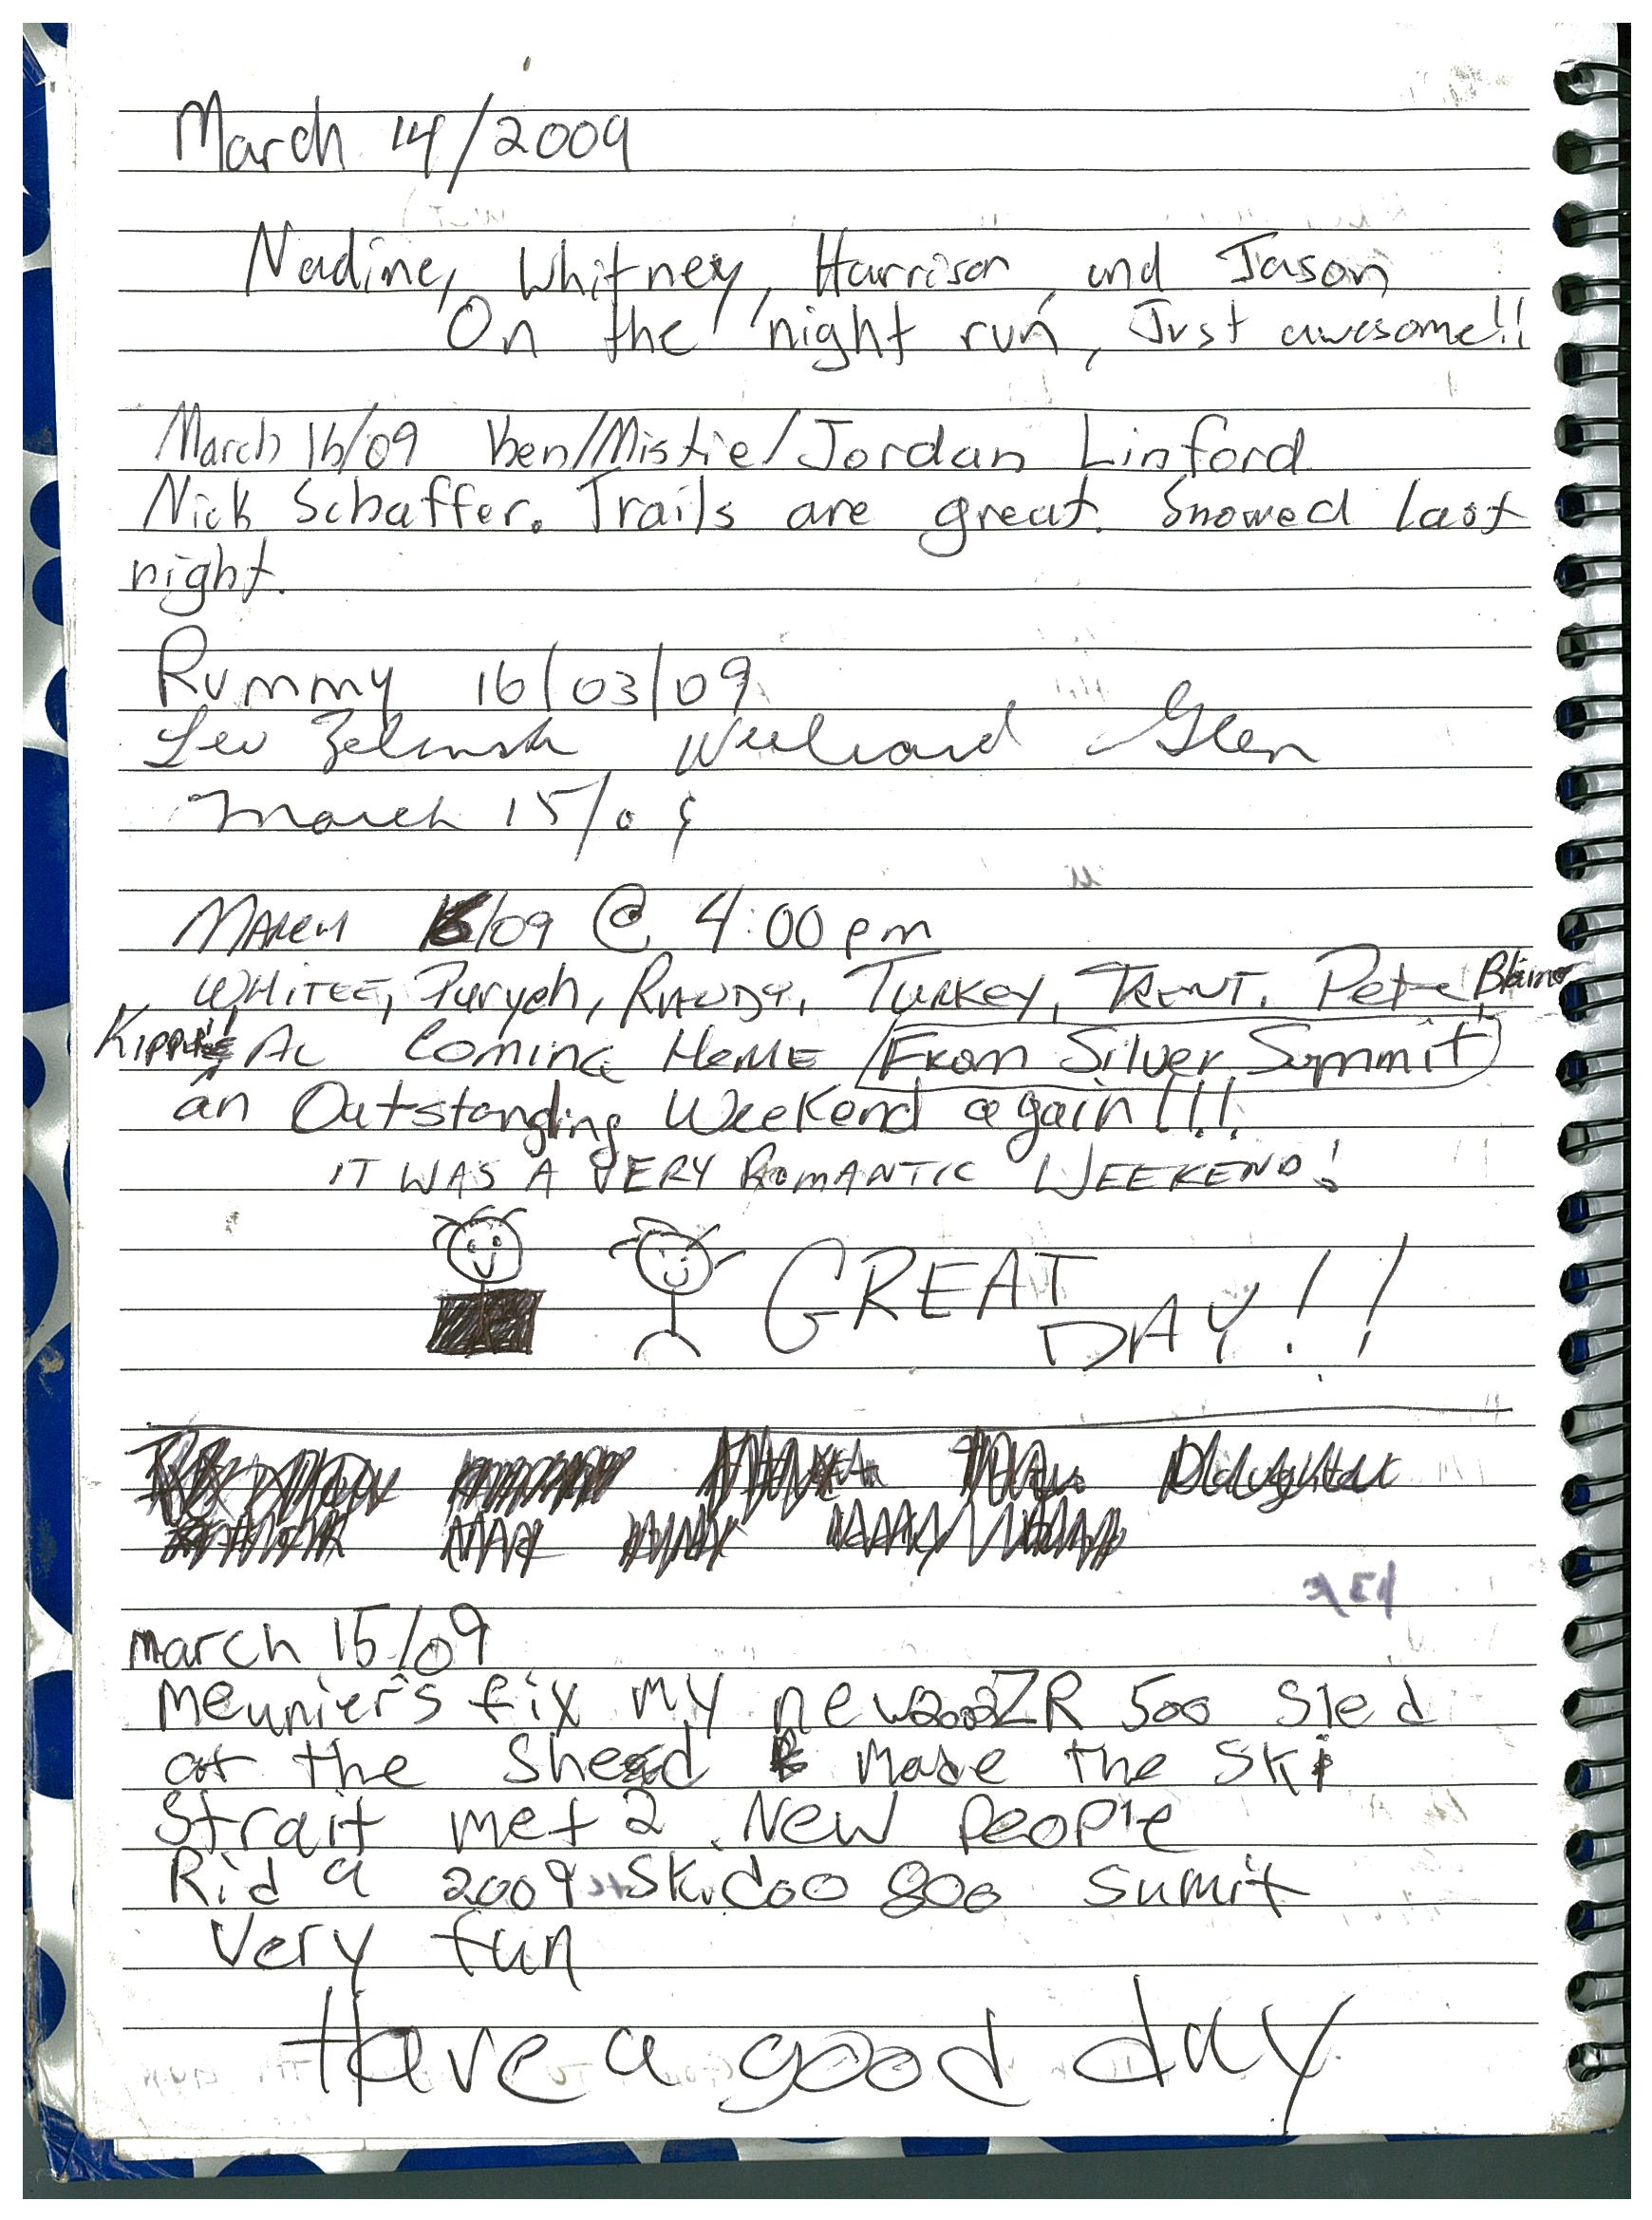 March 14/2009
Nadine, Whitney, Harrison, and Jason
On the night run, Just awesome!!
March 16/09 Ken/Mistie/Jordan Linford
Nick Schaffer. Trails are great. Snowed last
night.
Rummy 16/03/09
Leo Glen
March 15/09
MARCH /09 @ 4:00 pm
WHITEE, Puryeh, RANDY, TURKEY, TRENT, Pete, Blaine
AL Coming Home From Silver Summit
an Outstanding Weekend again!!!
IT WAS A VERY ROMANTIC WEEKEND!
GREAT
DAY!!
march 15/09
meunier's fix my new 2002 ZR 500 sled
at the shead made the ski
strait met 2 New people
Rid a 2009 skidoo 800 sumit
very fun
Have a good day